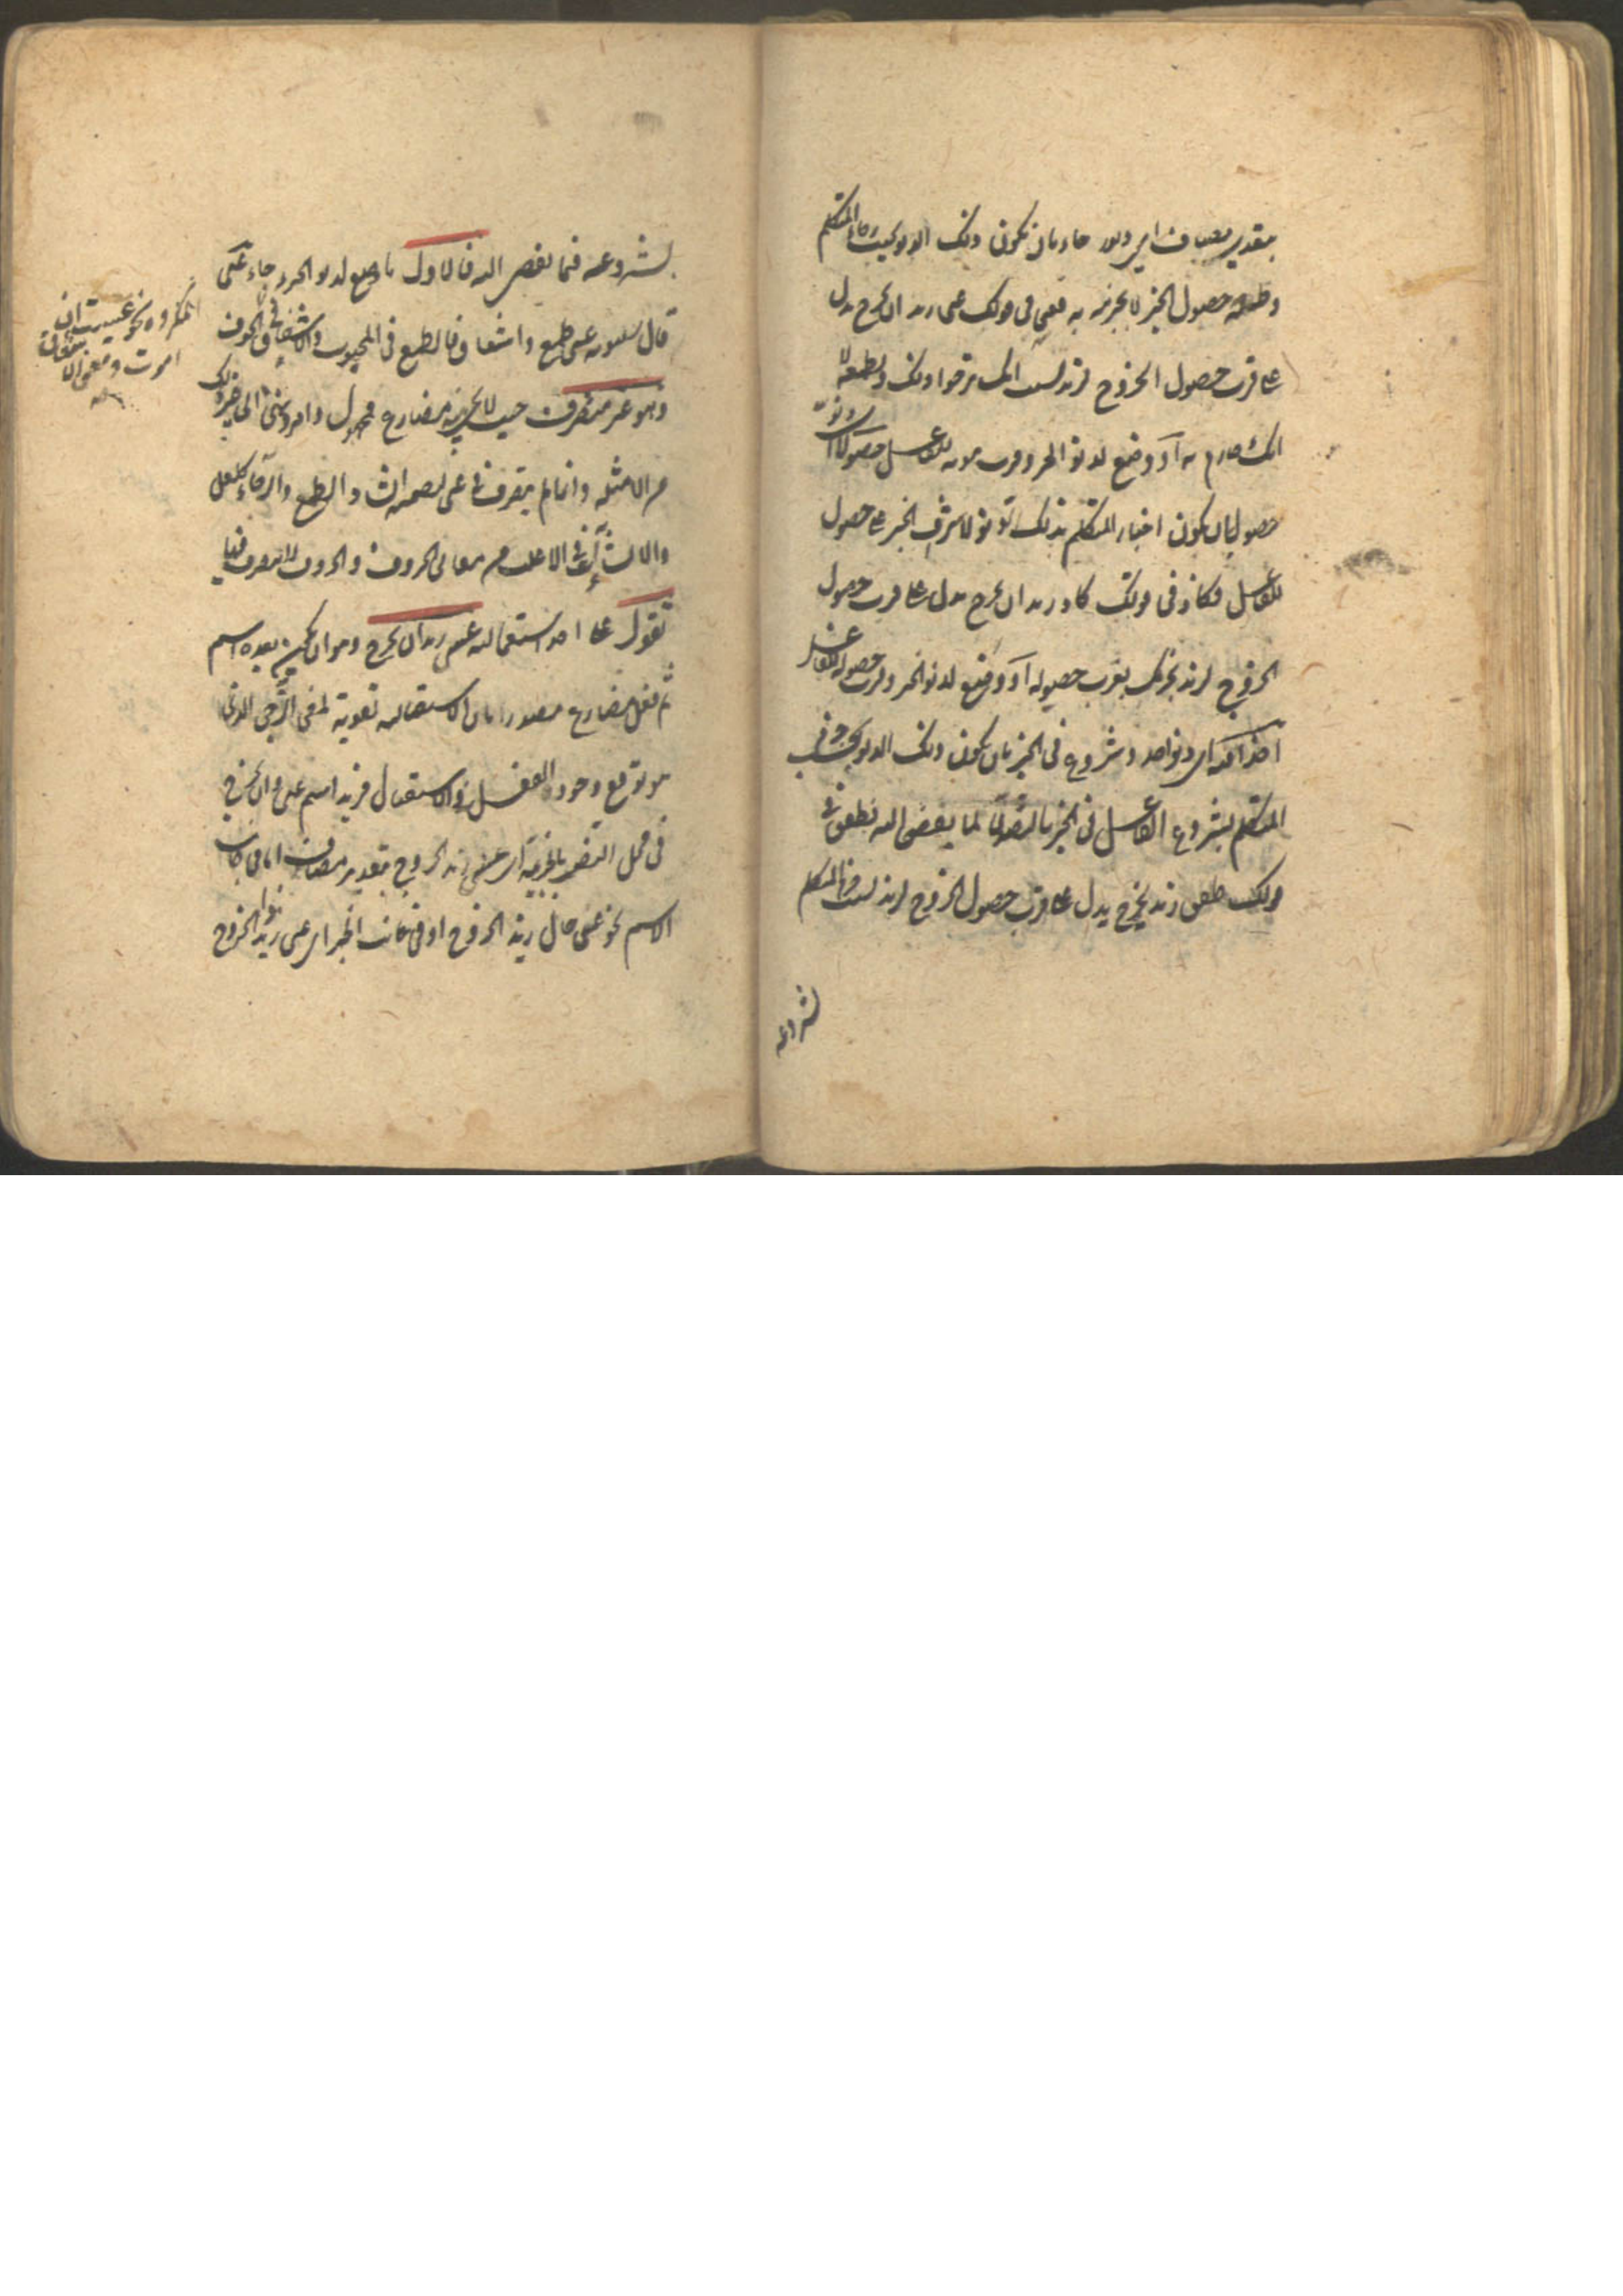 بتقدير مضاف اي دنو رجاء بان يكون ذلك الدنو بحسب رجاء المتكلم
وطمعه حصول الخبر لا بجزمه به فعسى في قولك عسى زيد ان يخرج يدل
على قرب حصول الخروج لزيد بسبب انك ترجو ذلك وتطمعه لا
انك جازم به او وضع لدنو الخبر وقرب ثبوته للفاعل حصولا اي دنو
حصول بان يكون اخبار المتكلم بذلك الدنو لاشراف الخبر على حصول
للفاعل فكاد في قولك كاد زيد ان يخرج يدل على قرب حصول
الخروج لزيد لجزمك بقرب حصوله او وضع لدنو الخبر وقرب حصوله للفاعل
اخذا فيه اي دنو اخذ وشروع في الخبر بان يكون ذلك الدنو بحسب جزم
المتكلم بشروع الفاعل في الخبر بالتصدي لما يفضي اليه فطفق في
قولك طفق زيد يخرج يدل على قرب حصول الخروج لزيد بسبب جزم المتكلم
بشروعه
بشروعه فيما يفضي اليه فالاول ما وضع لدنو الخبر رجاء عسى
قال سيبويه عسى طمع واشفاق فالطمع في المحبوب والاشفاق في الخوف
وهو غير متصرف حيث لا يجيء منه مضارع ومجهول وامر ونهي الى غير ذلك
من الامثلة وانما لم يتصرف في عسى لتضمنه انشاء الطمع والرجاء كلعل
والانشاءات في الاغلب من معاني الحروف والحروف لا يتصرف فيها
تقول على احد استعماليه عسى زيد ان يخرج وهو ان يكون بعده اسم
ثم فعل مضارع مصدر بان الاستقبالية تقوية لمعنى الترجي الذي
هو توقع وجود الفعل في الاستقبال فزيد اسم عسى وان يخرج
في محل النصب بالخبرية اي عسى زيد الخروج بتقدير مضاف اما في جانب
الاسم نحو عسى حال زيد الخروج او في جانب الخبر اي عسى زيد ذا الخروج
المكروه نحو عسيت ان
اموت ومعنى الاشفاق